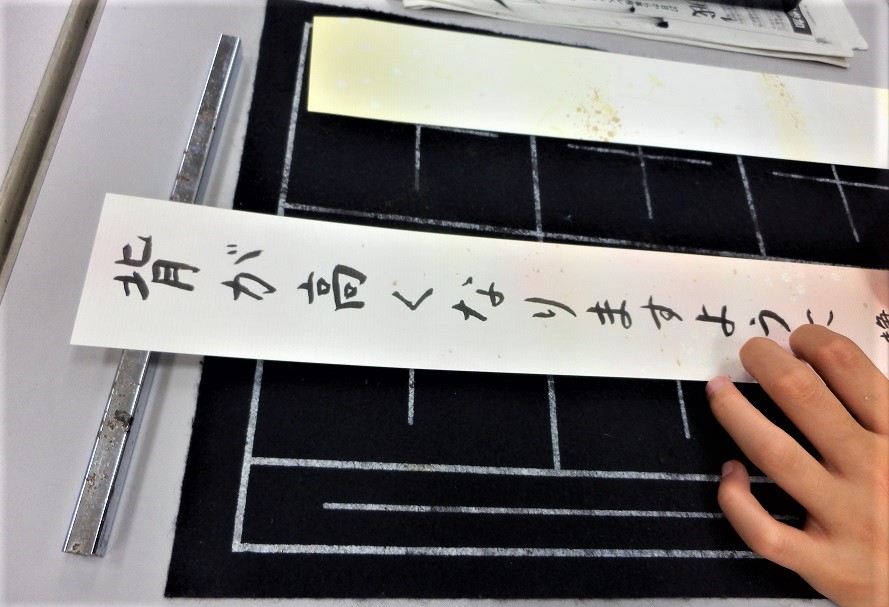 背が高くなりますように